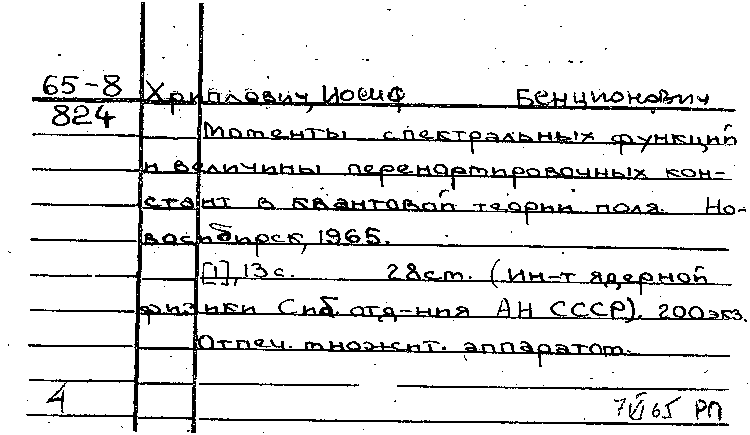 65-8 Хриплович, Иосиф Бенционович
824 Моменты спектральных функций
и величины перенормировочных кон-
стант в квантовой теории поля. Но-
восибирск, 1965.
[1], 13 с. 28 см. (Ин-т ядерной
физики Сиб. отд-ния АН СССР). 200 экз.
Отпеч. множит. аппаратом.
4 7 VI 65 РП